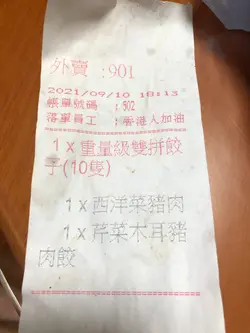 外賣 :901
2021/09/10 18:13
帳單號碼 :902
落單員工 :香港人加油
1 x 重量級雙拼餃
子(10隻)
1 x 西洋菜豬肉
1 x 芹菜木耳豬
肉餃